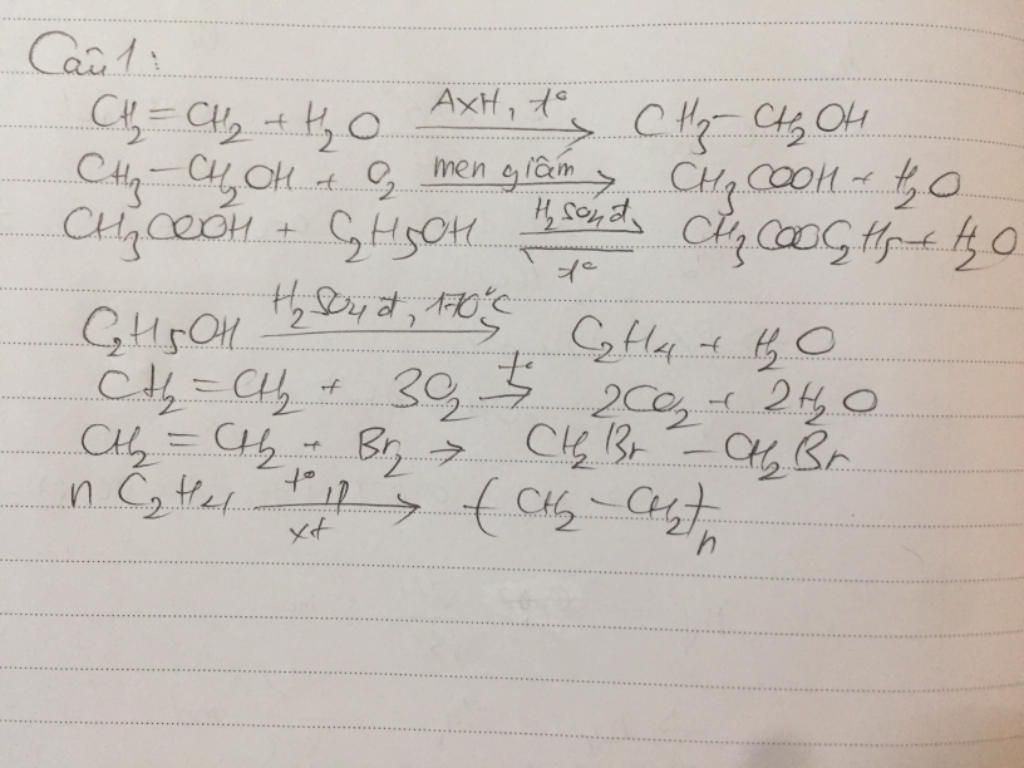 Câu 1:
CH₂=CH₂ + H₂O AxH, t° → CH₃-CH₂OH
CH₃-CH₂OH + O₂ men giấm → CH₃COOH + H₂O
CH₃COOH + C₂H₅OH H₂SO₄ đ, t° ⇌ CH₃COOC₂H₅ + H₂O
C₂H₅OH H₂SO₄ đ, 170°C → C₂H₄ + H₂O
CH₂=CH₂ + 3O₂ t° → 2CO₂ + 2H₂O
CH₂=CH₂ + Br₂ → CH₂Br-CH₂Br
n C₂H₄ t°, p, xt → (CH₂-CH₂)n